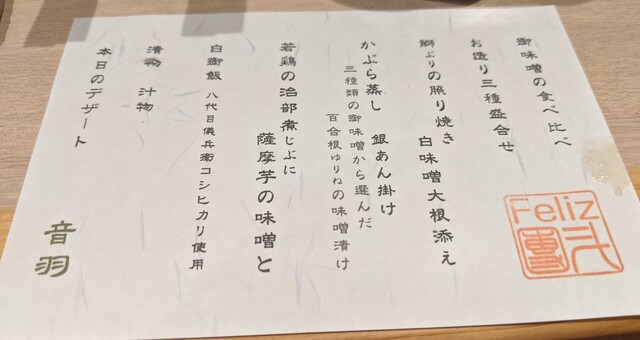 御味噌の食べ比べ
お造り三種盛合せ
鰤ぶりの照り焼き 白味噌大根添え
かぶら蒸し 銀あん掛け
三種類の御味噌から選んだ
百合根ゆりねの味噌漬け
若鶏の治部煮じぶに
薩摩芋の味噌と
白御飯 八代目儀兵衛コシヒカリ使用
漬物 汁物
本日のデザート
音羽
Feliz